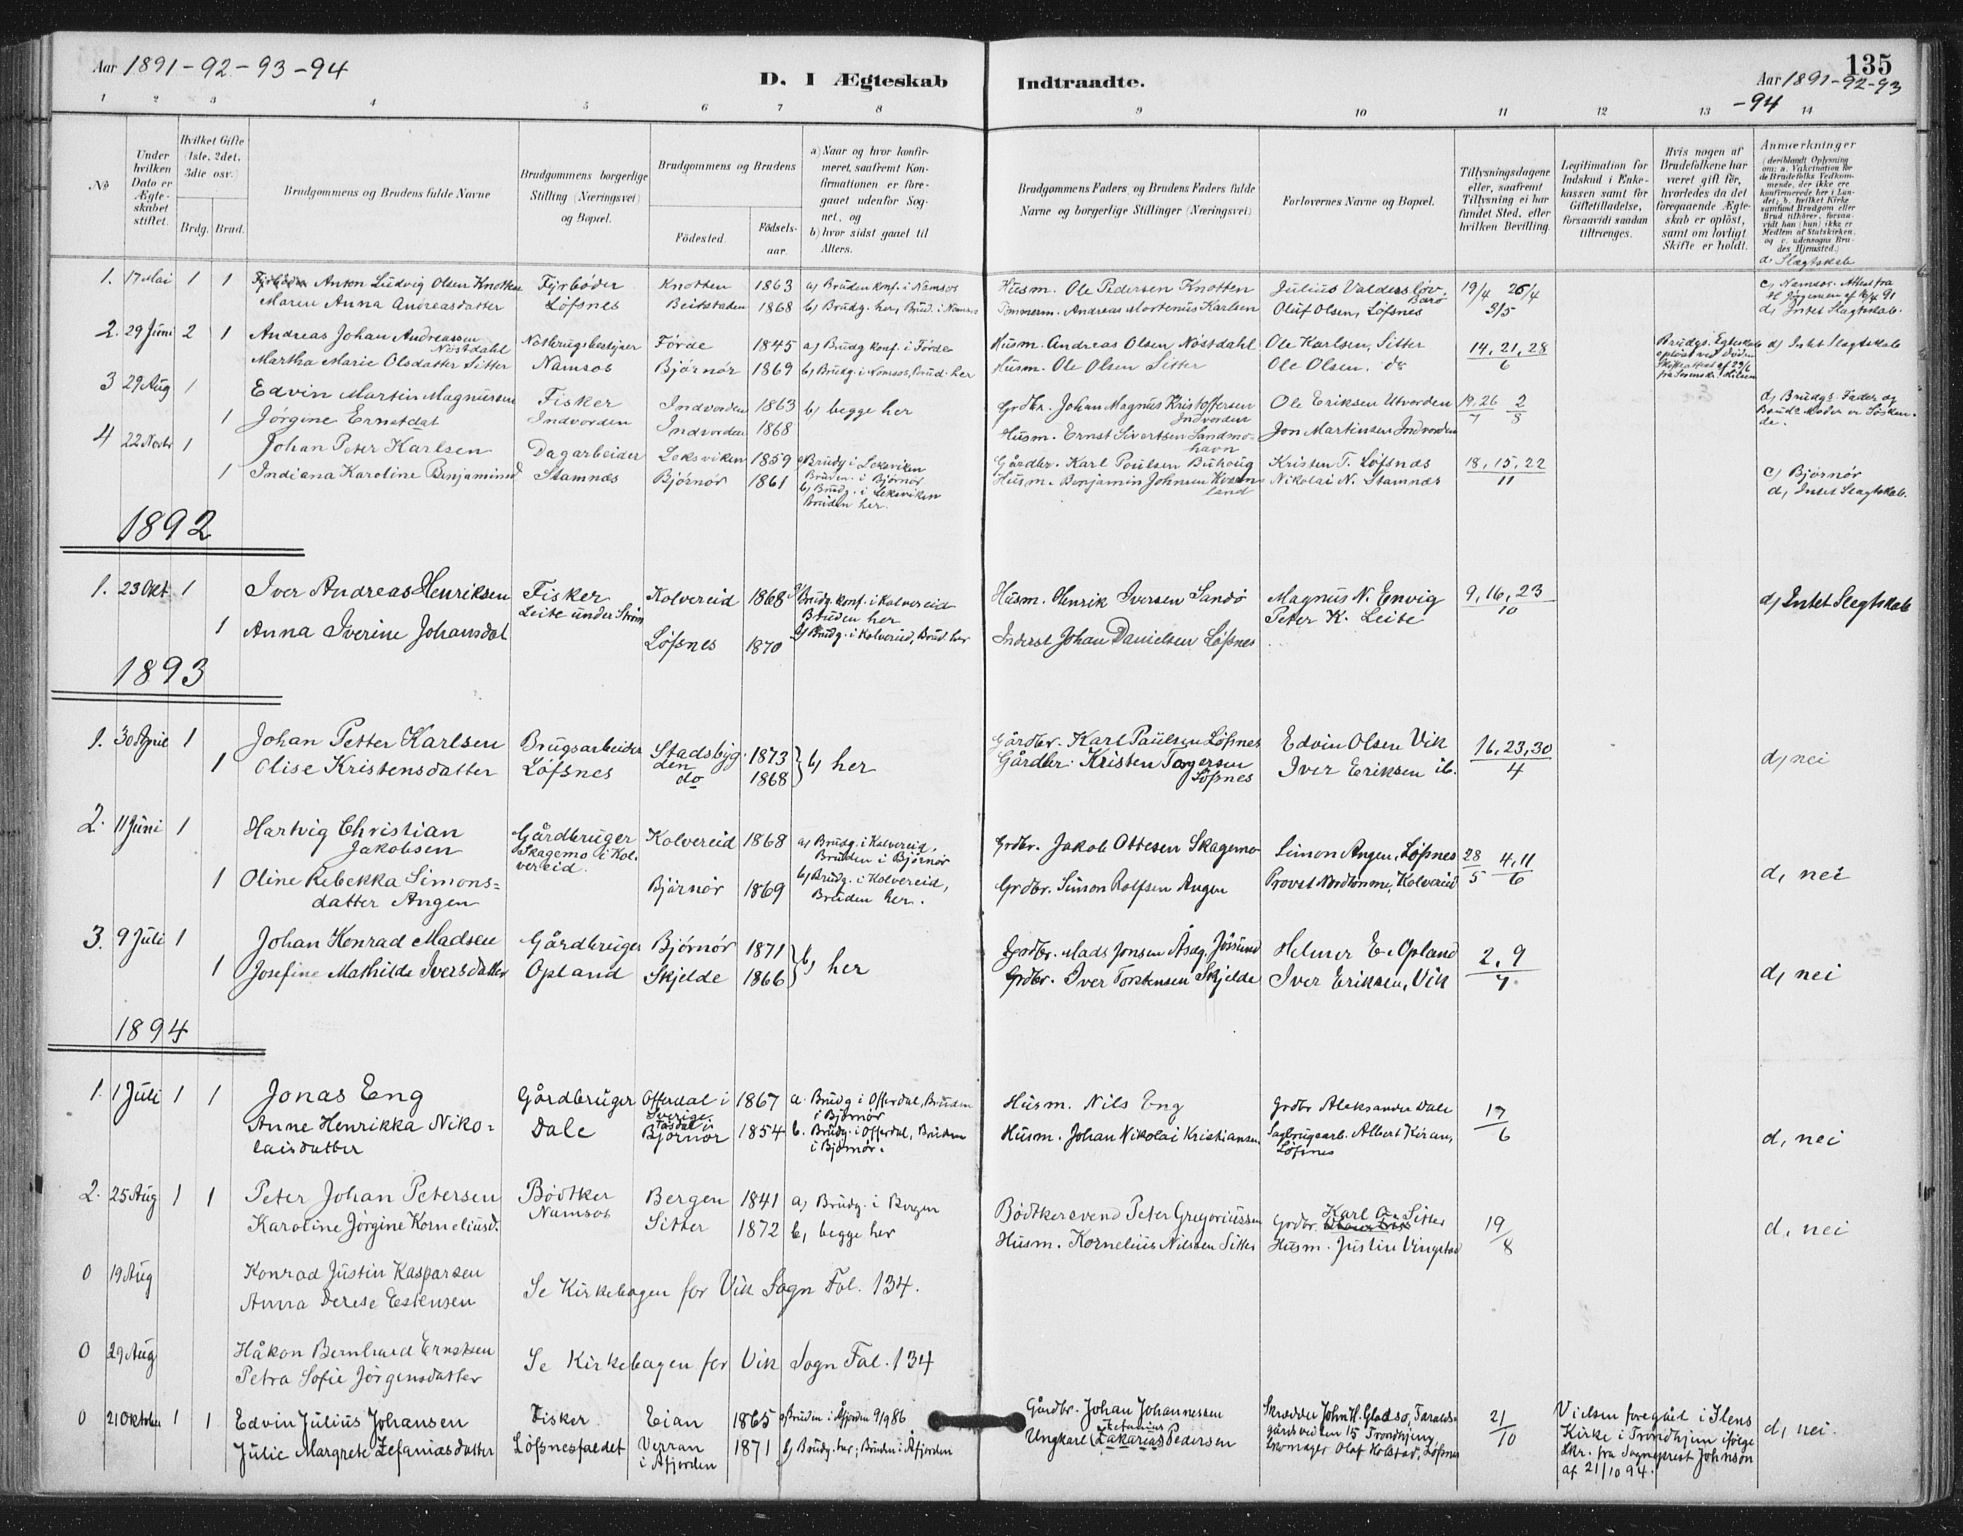 Aar 1891-92-93-94
D. I Ægteskab Indtraadte.
135
Aar 1891-92-93
-94
1 2 3 4 5 6 7 8 9 10 11 12 13 14
No
Under hvilken Dato er Ægteskabet stiftet.
Hvilket Gifte (1ste, 2det, 3die osv.)
Brdg. Brud.
Brudgommens og Brudens fulde Navne
Brudgommens borgerlige Stilling (Næringsvei) og Bopæl.
Brudgommens og Brudens
Fødested. Fødsels-aar.
a) Naar og hvor konfirmeret, saafremt Konfirmationen er foregaaet udenfor Sognet, og
b) hvor sidst gaaet til Alters.
Brudgommens Faders, og Brudens Faders fulde Navne og borgerlige Stillinger (Næringsvei)
Forlovernes Navne og Bopæl.
Tillysningsdagene eller, saafremt Tillysning ei har fundet Sted, efter hvilken Bevilling.
Legitimation for Indskud i Enkekassen samt for Giftetilladelse, forsaavidt saadan tiltrænges.
Hvis nogen af Brudefolkene har været gift før, hvorledes da det foregaaende Ægteskab er opløst, samt om lovligt Skifte er holdt.
Anmærkninger
d. Slægtskab
1. 17 Mai 1 1 Anton Ludvig Olsen Knotten Fyrbøder Knotten 1863 a) Bruden konf. i Namsos Husm. Ole Pedersen Knotten Julius Valderslöv, Barö 19/4 26/4 c) Namsos. Attest fra
Maren Anna Andreasdatter Løfsnes Beitstaden 1868 b) Brudg. her, Brud. i Namsos Andreas Mortenus Karlsen Oluf Olsen, Løfsnes 3/5 d, Intet Slagtskab.
2. 29 Juni 2 1 Andreas Johan Andreassen Nöstdahl Førde 1845 a) Brudg konf. i Førde Husm. Andreas Olsen Nöstdahl Ole Karlsen, Sitter 14, 21, 28 d) Intet Slagtskab
Martha Marie Olsdatter Sitter Namsos Bjørnør 1869 b) Brudg. i Namsos, Brud. her Husm. Ole Olsen Sitter Ole Olsen. do 6
3 29 Aug 1 Edvin Martin Magnussen Fisker Indvorden 1863 b) begge her Grdbr. Johan Magnus Kristoffersen Indvorden Ole Eriksen Utvorden 19, 26 2 d) Brudgs. Fader og
1 Jørgine Ernstdat Indvorden Indvorden 1868 Husm. Ernst Sivertsen Sandmohavn Jon Martinsen Indvorden 7 8 Bruds Moder er Søskende.
4 22 Novbr 1 Johan Peter Karlsen Dagarbeider Leksviken 1859 Brudg i Leksviken Gårdbr. Karl Poulsen Buhaug Kristen T. Løfsnes 18, 15, 22 c) Bjørnør
1 Indiana Karoline Benjaminsd Stamnæs Bjørnør 1861 Bruden. i Bjørnør Husm. Benjamin Johnsen Nikolai N. Stamnæs 11 d, Intet Slagtskab.
b) Brudg. i Leksviken
Bruden her.
1892
1. 23 Okt 1 Iver Andreas Henriksen Fisker Kolvereid 1868 Brudg. konf. i Kolvereid Husm. Henrik Iversen Sandö Magnus N. Envig 9, 16, 23 d) Intet Slegtskab
Leite under Strøm Bruden her Peter K. Leite 10
1 Anna Iverine Johansdat Løfsnes 1870 b) Brudg. i Kolvereid, Brud. her Inderst Johan Danielsen Løfsnes
1893
1. 30 April 1 Johan Petter Karlsen Brugsarbeider Stadsbygden 1873 b, her Gårdbr. Karl Paulsen Løfsnes Edvin Olsen Vik 16, 23, 30 d, nei
1 Olise Kristensdatter Løfsnes do 1868 Gårdbr. Kristen Torgersen Løfsnes Iver Eriksen ib. 4
2. 11 Juni 1 Hartvig Christian Jakobsen Gårdbruger Skagemo i Kolvereid. Kolvereid 1868 a) Brudg. i Kolvereid, Bruden i Bjørnør Grdbr. Jakob Ottesen Skagemo Simon Angen, Løfsnes 28/5 4, 11/6 d, nei
1 Oline Rebekka Simonsdatter Angen Bjørnør 1869 b) Brudg. i Kolvereid, Bruden her. Grdbr. Simon Rolfsen Angen Provst Nordtomme, Kolvereid
3. 9 Juli 1 Johan Konrad Madsen Gårdbruger Bjørnør 1871 b, her Grdbr. Mads Jonsen Åsdg, Jössund Helmer E. Opland 2, 9 d, nei
1 Josefine Mathilde Iversdatter Opland Skjelde 1866 Grdbr. Iver Torstensen Skjelde Iver Eriksen, Vik 7
1894
1. 1 Juli 1 1 Jonas Eng Gårdbruger Offerdal i Sverige 1867 a. Brudg i Offerdal, Bruden i Bjørnør Husm. Nils Eng Grdbr Aleksander Dale 17/6 d, nei
Anne Henrikka Nikolaisdatter Dale Bjørnør 1854 b. Brudg. i Offerdal, Bruden i Bjørnør. Husm. Johan Nikolai Kristiansen Sagbrugsarb. Albert Kiran, Løfsnes
2. 25 Aug 1 1 Peter Johan Petersen Bødtker Bergen 1841 a) Brudg. i Bergen Bødtkersvend Peter Gregoriussen Grdbr. Karl O. Sitter 19/8 d, nei
Karoline Jørgine Korneliusd. Namsos Sitter 1872 b, begge her Husm. Kornelius Nilssen Sitter Husm. Justin Vingstad
0 19 Aug Konrad Justin Kaspersen Se Kirkebogen for Vik Sogn Fol. 134.
Anna Terese Estensen
0 29 Aug Håkon Bernhard Ernstsen Se Kirkebogen for Vik Sogn Fol. 134
Petra Sofie Jörgensdatter
0 21 Oktober 1 1 Edvin Julius Johansen Fisker Eian 1865 a) Bruden i Åfjorden 9/9 86 Gårdbr. Johan Johannessen Skrædder John H. Gladsø, Taraldsgårdsveiten 15 Trondhjem 21/10 Vielsen foregået i Ilens Kirke i Trondhjem ifølge Skr. fra Sogneprest Johnson af 21/10 94. d, nei.
Julie Margrete Zefaniasdatter Løfsnesfaldet Verran i Åfjorden 1871 b) Brudg. her; Bruden i Åfjorden Ungkarl Zakarias Pedersen Skomager Olaf Kolstad, Løfsnes